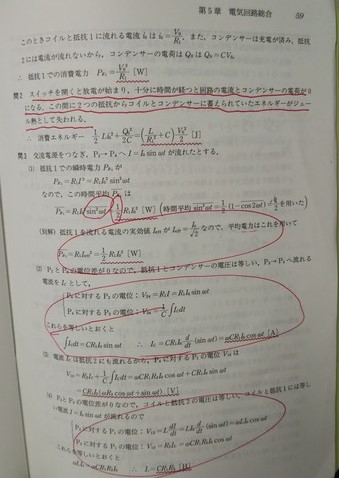 第5章 電気回路総合 59
このときコイルと抵抗1に流れる電流 i₀ は i₀ = V₀/R₁, また, コンデンサーは充電が済み, 抵抗
2には電流が流れないから, コンデンサーの電荷は Q₀ は Q₀ = CV₀.
∴ 抵抗1での消費電力 P_R₁ = V₀²/R₁ [W]
問2 スイッチを開くと放電が始まり, 十分に時間が経つと回路の電流とコンデンサーの電荷が0
になる. この間に2つの抵抗からコイルとコンデンサーに蓄えられていたエネルギーがジュー
ル熱として失われる.
∴ 消費エネルギー 1/2 Li₀² + Q₀²/2C = (L/R₁² + C) V₀²/2 [J]
問3 交流電源をつなぎ, P₂→P₄ へ I = I₀ sin ωt が流れたとする.
(1) 抵抗1での瞬時電力 P_R₁ が
P_R₁ = R₁I² = R₁I₀² sin² ωt
なので, この時間平均 P_R₁ は
P_R₁ = R₁I₀² sin² ωt = 1/2 R₁I₀² [W] (時間平均 sin² ωt = 1/2 (1 − cos 2ωt) = 1/2 を用いた)
(別解) 抵抗1を流れる電流の実効値 I_eff が I_eff = I₀/√2 なので, 平均電力はこれを用いて
P_R₁ = R₁I_eff² = 1/2 R₁I₀² [W]
の電位差が0なので, 抵抗1とコンデンサーの電圧は等しい. へ流れる
電流を I_C として,
に対する の電位 : = R₁I = R₁I₀ sin ωt
に対する の電位 : = 1/C ∫ I_C dt
これらを等しいとおくと
∫ I_C dt = CR₁I₀ sin ωt ∴ I_C = CR₁I₀ d/dt (sin ωt) = ωCR₁I₀ cos ωt [A]
(3) 電流 I_C は抵抗2にも流れるから, の電位 は
= CR₁I₀(ωR₂ cos ωt + sin ωt) [V]
の電位差が0なので, コイルと抵抗2の電圧は等しい. コイルと抵抗1には等し
い電流 I = I₀ sin ωt が流れるので
に対する の電位 : = L dI/dt = LI₀ d/dt (sin ωt) = ωLI₀ cos ωt
に対する の電位 : = R₂I_C = ωCR₁R₂I₀ cos ωt
これを等しいとおくと
ωLI₀ = ωCR₁R₂I₀ ∴ L = CR₁R₂ [H]